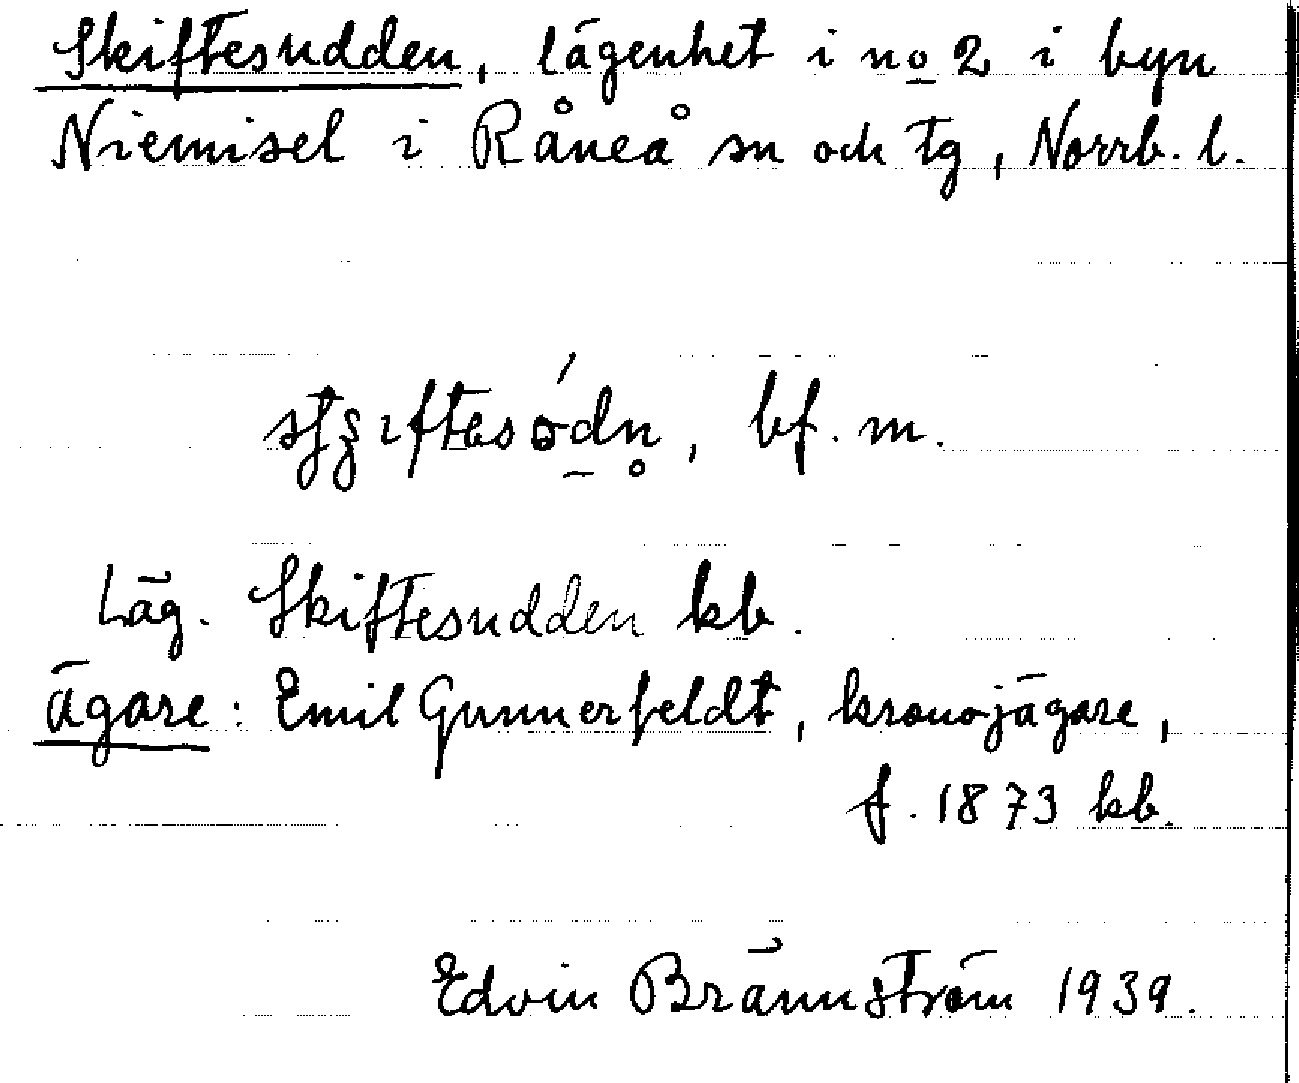 Skiftesudden, lägenhet i no 2 i byn
Niemisel i Råneå sn och tg, Norrb. l.
bf. m.
Läg. Skiftesudden kb.
ägare: Emil Gunnerfeldt, kronojägare,
f. 1873 kb.
Edvin Brännström 1939.